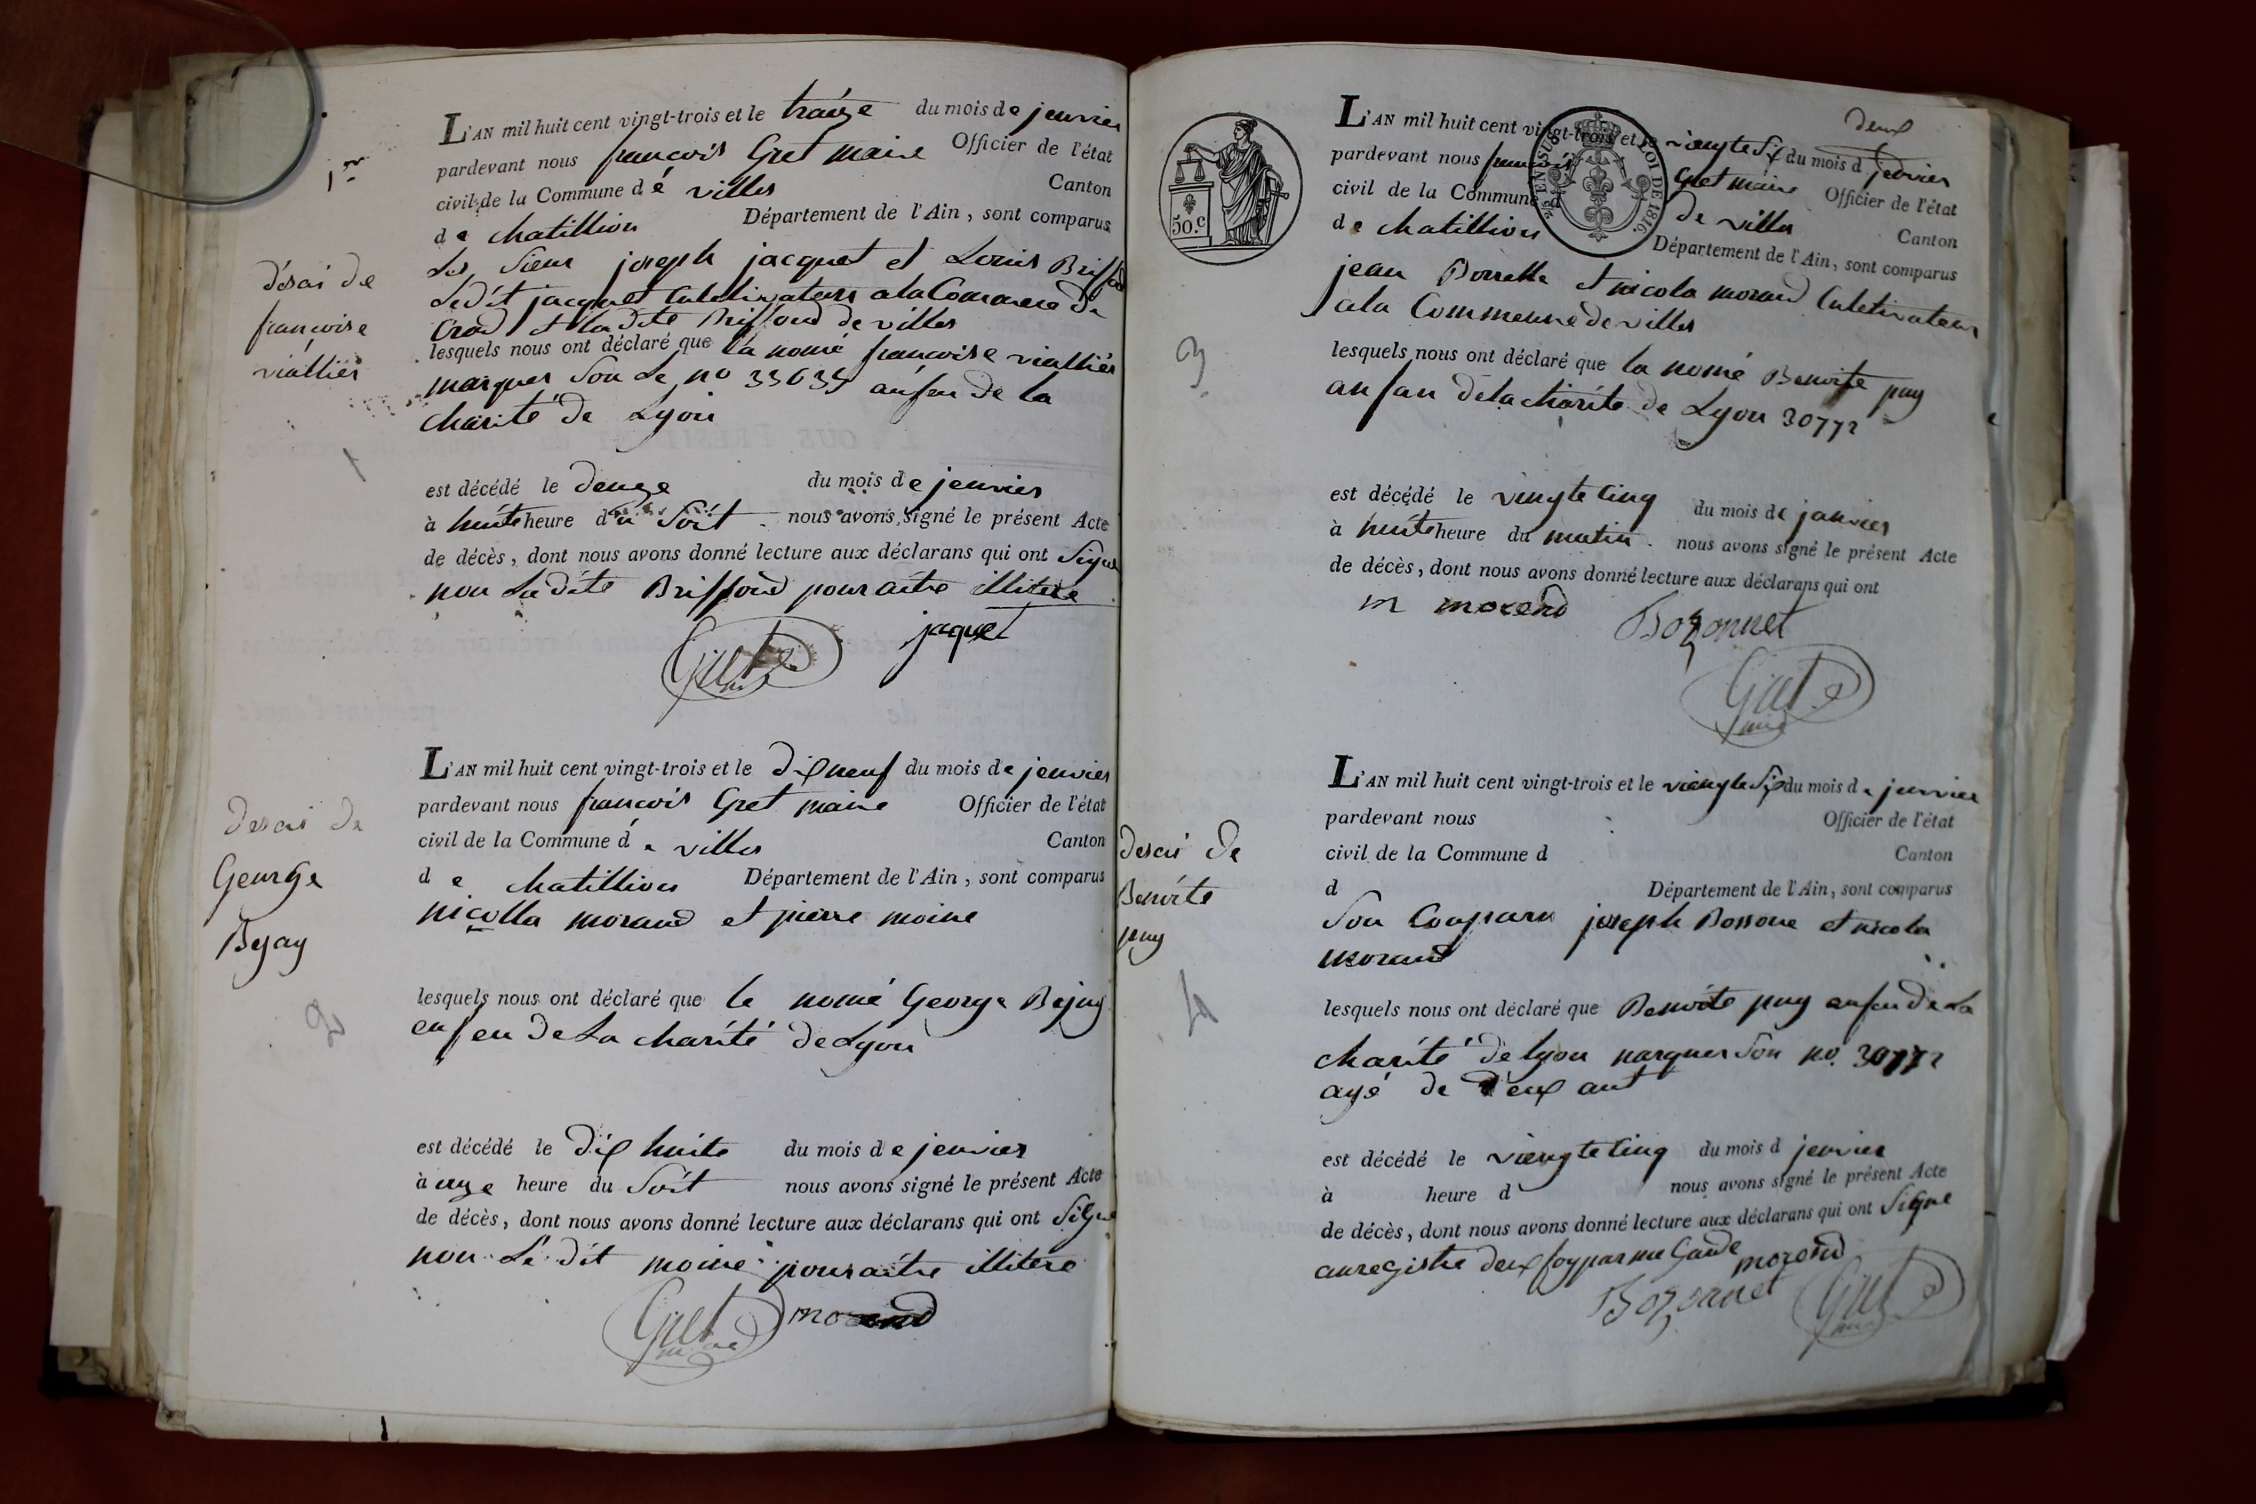 1er
L'AN mil huit cent vingt-trois et le traize du mois de jenvier
pardevant nous francois Gret maire Officier de l'état
civil de la Commune d é villes Canton
de chatillion Département de l'Ain, sont comparus
Les Sieur joseph jacquet et Louis Briffod
Ledit jacquet Culetivateur a la Commune de
Crad et la dite Briffoud de villes
désai de
francoise
vialliér
lesquels nous ont déclaré que la nomé francoise vialliér
marquer Son Le no 33639 anfan de la
charité de Lyon
1
est décédé le douze du mois de jenvier
à huite heure du Soit nous avons signé le présent Acte
de décès, dont nous avons donné lecture aux déclarans qui ont Signe
non La dite Briffoud pour aitre illitere
jaquet
Gret maire
L'AN mil huit cent vingt-trois et le dix neuf du mois de jenvier
pardevant nous francois Gret maire Officier de l'état
civil de la Commune de villes Canton
de chatillion Département de l'Ain, sont comparus
nicolla morand et pierre moine
desai de
George
Bejay
lesquels nous ont déclaré que le nomé George Bejay
enfen de La charité de Lyon
2
est décédé le dix huite du mois de jenvier
à onze heure du Soit nous avons signé le présent Acte
de décès, dont nous avons donné lecture aux déclarans qui ont Signe
non Le dit moine pour aitre illitere
Gret maire morand
deux
50.c
EN SUS LOI DE 1816.
L'AN mil huit cent vingt-trois et le viengte Six du mois d jenvier
pardevant nous francois Gret maire Officier de l'état
civil de la Commune d de villes Canton
de chatillion Département de l'Ain, sont comparus
jean et nicola morand Culetivateur
a la Commeune de villes
3
lesquels nous ont déclaré que la nomé Benoite puy
anfan de la charité de Lyon 30772
est décédé le viengte Cinq du mois de janvier
à huite heure du matin nous avons signé le présent Acte
de décès, dont nous avons donné lecture aux déclarans qui ont
m morend Bozonnet
Gret maire
L'AN mil huit cent vingt-trois et le viengte Six du mois de jenvier
pardevant nous Officier de l'état
civil de la Commune d Canton
d Département de l'Ain, sont comparus
desai de
Benoite
puy
Son Comparu joseph Bossone et nicola
morand
4
lesquels nous ont déclaré que Benoite puy anfen de La
charité de lyon marquer Son no. 30772
agé de deux ant
est décédé le viengte Cinq du mois d jenvier
à heure d nous avons signé le présent Acte
de décès, dont nous avons donné lecture aux déclarans qui ont Signe
anregistre deux foy par me Garde morend
Bozonnet Gret maire